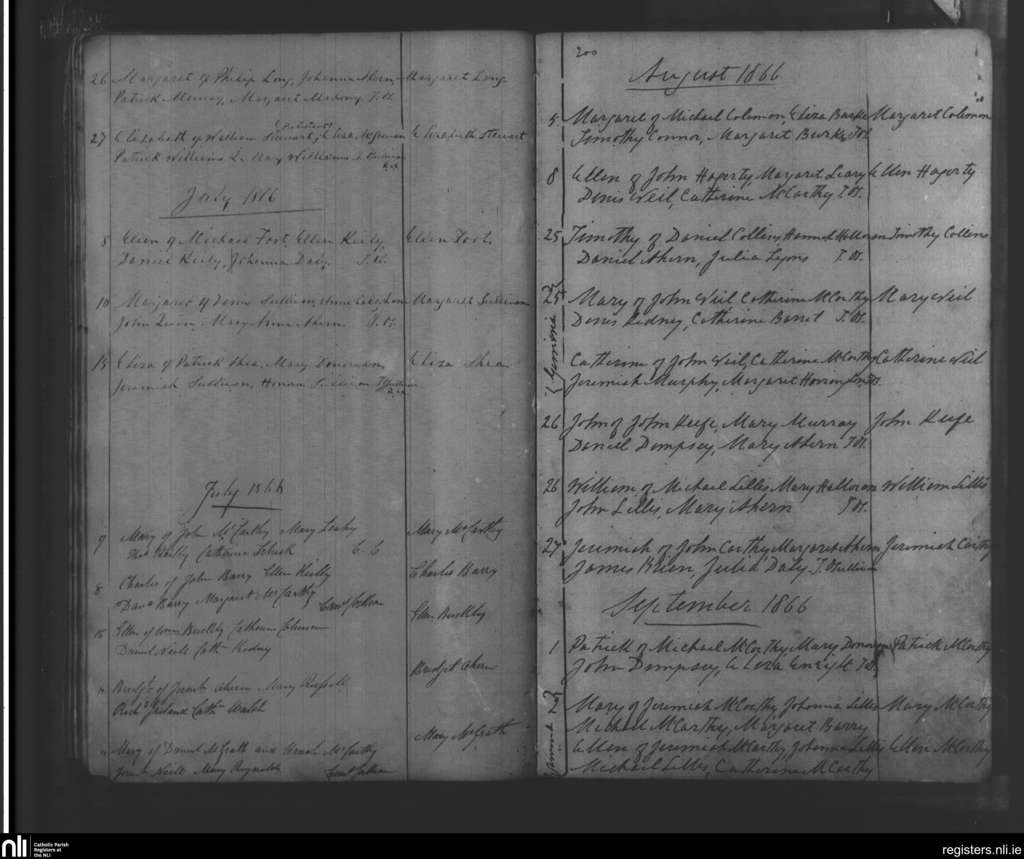 26 Margaret of Philip Long, Johanna Ahern Margaret Long
Patrick Murray, Margaret Murray T. M.
(Protestant)
27 Elizabeth of William Stewart, Eliza Elizabeth Stewart
Patrick Williams & Mary Williams
July 1866
8 Ellen of Michael Foot, Ellen Kiely Ellen Foot
Daniel Kiely, Johanna Daly T. M.
10 Margaret of Denis Sullivan, Margaret Sullivan
John Mary Anne Ahern T. M.
15 Eliza of Patrick Shea, Mary Donovan Eliza Shea
Jeremiah Sullivan, Honora Sullivan
July 1866
9 Mary of John McCarthy Mary Leahy Mary McCarthy
Reilly Catherine C. C.
8 Charles of John Barry Ellen Charles Barry
David Barry Margaret McCarthy
15 Ellen of Buckley Catherine Ellen Buckley
Daniel Neill Cath Kidney
Bridget Ahern
" Bridgt of Jacob Ahern Mary Russell
Richd Cathn Walsh
Mary McGrath
" Mary of Daniel McGrath and McCarthy
Neill Mary Reynolds
200
August 1866
5 Margaret of Michael Colemon, Eliza Burke Margaret Colemon
Timothy Connor, Margaret Burke T. M.
8 Ellen of John Hagerty, Margaret Leary Ellen Hagerty
Denis Neil, Catherine McCarthy T. M.
25 Timothy of Daniel Collins, Hannah Timothy Collins
Daniel Ahern, Julia Lyons T. M.
25 Mary of John Neil Catherine McCarthy Mary Neil
Denis Kidney, Catherine Barret T. M.
Gemini
Catherine of John Neil, Catherine McCarthy Catherine Neil
Jeremiah Murphy, Margaret T. M.
26 John of John Keefe, Mary Murray John Keefe
Daniel Dempsey, Mary Ahern T. M.
26 William of Michael Lillis, Mary Halloran William Lillis
John Lillis, Mary Ahern T. M.
27 Jeremiah of John Carthy, Margaret Ahern Jeremiah Carthy
James Brien, Julia Daly T. Sullivan
September 1866
1 Patrick of Michael McCarthy, Mary Donovan Patrick McCarthy
John Dempsey, Eliza Enright T. M.
2 Mary of Jeremiah McCarthy, Johanna Lillis Mary McCarthy
Michael McCarthy, Margaret Barry
Ellen of Jeremiah McCarthy, Johanna Lillis Ellen McCarthy
Michael Lillis, Catherine McCarthy
nli Catholic Parish
Registers at
the NLI
registers.nli.ie